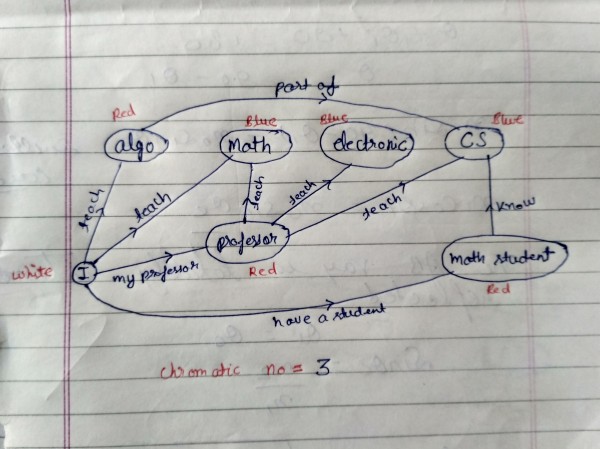 part of
Red
Blue
Blue
Blue
algo
math
electronic
CS
teach
teach
teach
teach
teach
know
professor
math student
white
I
my professor
Red
Red
have a student
chromatic no = 3